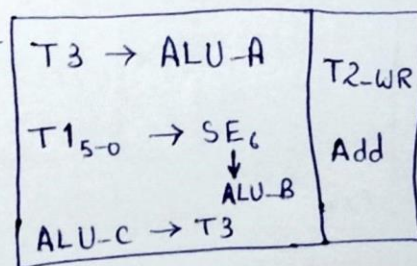 T3 → ALU-A
T1₅₋₀ → SE₆
↓
ALU-B
ALU-C → T3
T2-WR
Add